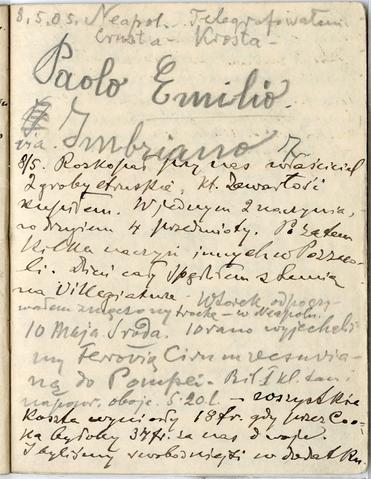 8.5.05. Neapol. Telegrafowałem
Ernsta - Krosta -
Paolo Emilio.
via Imbriano 7
8/5. Rozkopał przy nas właściciel
2 groby etruskie, kt. zawartość
kupiłem. W jednym 2 naczynia,
w drugim 4 przedmioty. Po zatem
kilka naczyń innych w Pozzuo-
li. Dzień cały spędziłem z Lunią
na Villegiaturze. Wtorek odpoczy-
wałem zmęczony trochę - w Neapolu.
10 Maja Środa. 10 rano wyjechali
my Ferrovią Circumvesuvia-
ną do Pompei. Bil. I kl. tam i
napowr. oboje 5.20 l. - wszystkie
koszta wyniosły 18 fr. gdy przez Coo-
ka byłoby 37 fr. za nas dwoje.
I byliśmy swobodniejsi w dodatku